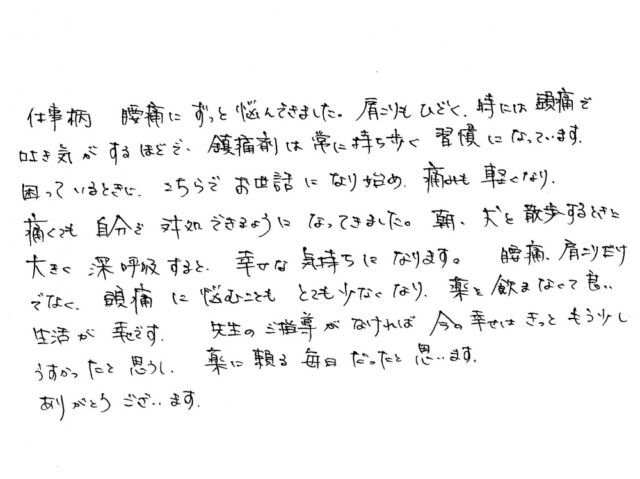 仕事柄 腰痛にずっと悩んできました。肩こりもひどく、時には頭痛で
吐き気がするほどで、鎮痛剤は常に持ち歩く習慣になっています。
困っているときに、こちらでお世話になり始め、痛みも軽くなり、
痛くても自分で対処できるようになってきました。朝、犬と散歩するときに
大きく深呼吸すると、幸せな気持ちになります。 腰痛、肩こりだけ
でなく、頭痛に悩むこともとても少なくなり、薬を飲まなくて良い
生活が幸せです。 先生のご指導がなければ今の幸せはきっともう少し
うすかったと思うし、薬に頼る毎日だったと思います。
ありがとうございます。